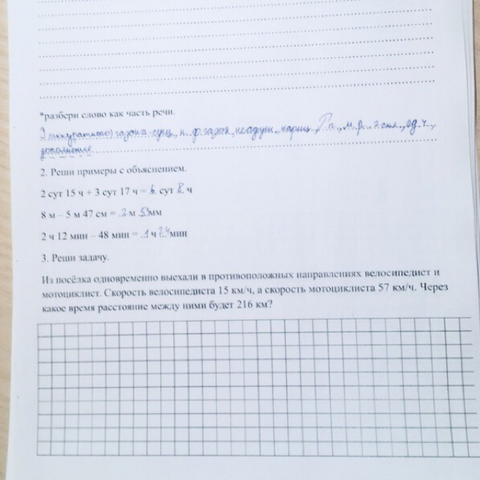 *разбери слово как часть речи.
газона-сущ., н. ф. газон, неодуш., нариц., Р.п., м.р., 2 скл., ед.ч.,
дополнение
2. Реши примеры с объяснением.
2 сут 15 ч + 3 сут 17 ч = 6 сут 8 ч
8 м – 5 м 47 см = 2 м 53мм
2 ч 12 мин – 48 мин = 1 ч 24мин
3. Реши задачу.
Из посёлка одновременно выехали в противоположных направлениях велосипедист и
мотоциклист. Скорость велосипедиста 15 км/ч, а скорость мотоциклиста 57 км/ч. Через
какое время расстояние между ними будет 216 км?